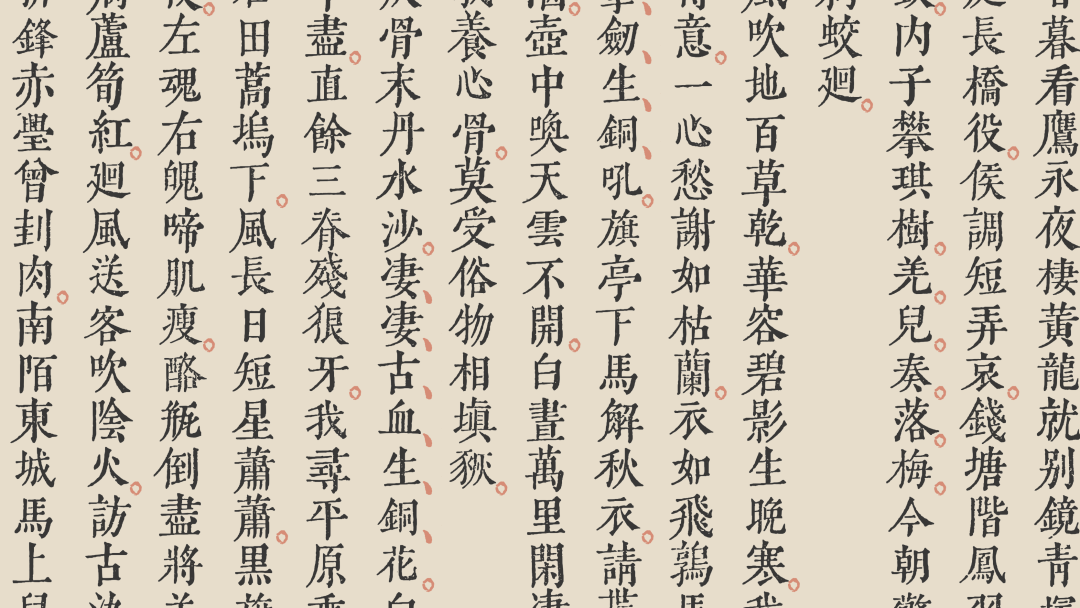 暮看鷹永夜棲黃龍就別鏡青
長橋役。侯調短弄哀。錢塘階鳳
内子攀琪樹。羌。兒。奏。落。梅。今朝
蛟廻。
吹地百草乾。華容碧影生晚寒。我
意。一心愁謝如枯蘭。衣如飛鶉馬
劒、生、銅、吼。旗亭下馬解秋衣。請貰
壺中喚天雲不開。白晝萬里閑淒
養心骨。莫受俗物相塡豥。
骨末丹水沙。淒、淒、古、血、生、銅、花。白
盡。直餘三脊殘狼牙。我尋平原乘
田蒿塢下。風長日短星蕭蕭。黑旗
左魂右魄啼肌瘦。酪瓶倒盡將羊
蘆筍紅。廻風送客吹陰火。訪古
鋒赤璺曾刲肉。南陌東城馬上兒